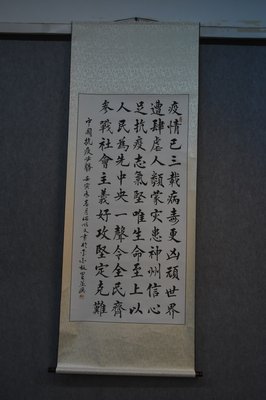 疫情已三載病毒更凶頑世界
遭肆虐人類蒙灾患神州信心
足抗疫志氣堅唯生命至上以
人民為先中央一聲令全民齊
參戰社會主義好攻堅定克難
中國抗疫必勝 壬寅